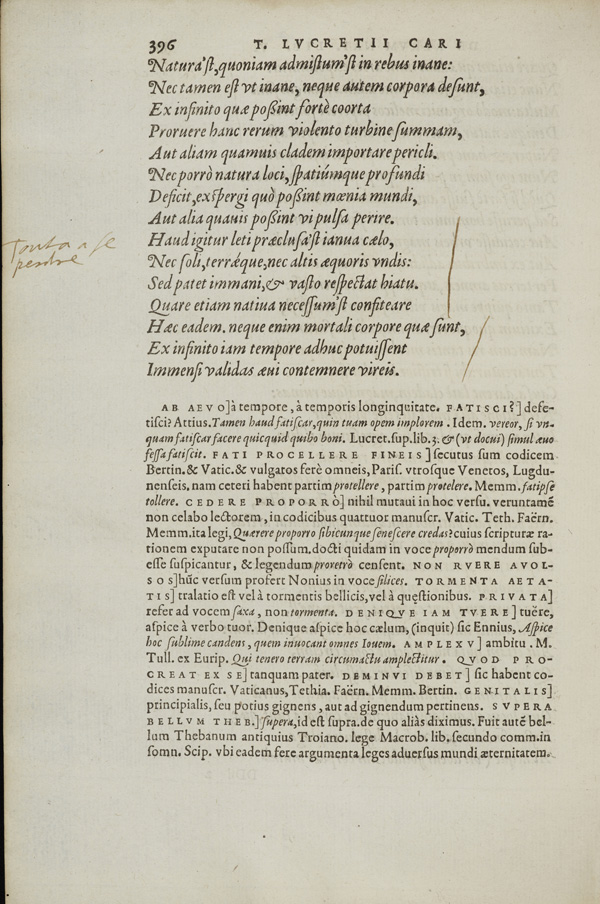 396 T. LVCRETII CARI
Natura'st, quoniam admistum'st in rebus inane:
Nec tamen est vt inane, neque autem corpora desunt,
Ex infinito quæ poßint fortè coorta
Proruere hanc rerum violento turbine summam,
Aut aliam quamuis cladem importare pericli.
Nec porrò natura loci, spatiúmque profundi
Deficit, exspergi quò poßint mœnia mundi,
Aut alia quauis poßint vi pulsa perire.
Haud igitur leti præclusa'st ianua cælo,
Nec soli, terrǽque, nec altis æquoris vndis:
Sed patet immani, & vasto respectat hiatu.
Quare etiam natiua necessum'st confiteare
Hæc eadem. neque enim mortali corpore quæ sunt,
Ex infinito iam tempore adhuc potuissent
Immensi validas æui contemnere vireis.
AB AEVO] à tempore, à temporis longinquitate. FATISCI?] defe-
tisci? Attius. Tamen haud fatiscar, quin tuam opem implorem. Idem. vereor, si vn-
quam fatiscar facere quicquid quibo boni. Lucret. sup. lib. 3. & (vt docui) simul æuo
fessa fatiscit. FATI PROCELLERE FINEIS] secutus sum codicem
Bertin. & Vatic. & vulgatos ferè omneis, Paris. vtrosque Venetos, Lugdu-
nenseis. nam ceteri habent partim protellere, partim protelere. Memm. fatipse
tollere. CEDERE PROPORRÒ] nihil mutaui in hoc versu. veruntamẽ
non celabo lectorem, in codicibus quattuor manuscr. Vatic. Teth. Faërn.
Memm. ita legi, Quærere proporro sibicunque senescere credas? cuius scripturæ ra-
tionem exputare non possum. docti quidam in voce proporrò mendum sub-
esse suspicantur, & legendum proretrò censent. NON RVERE AVOL-
SOS] hũc versum profert Nonius in voce silices. TORMENTA AETA-
TIS] tralatio est vel à tormentis bellicis, vel à quęstionibus. PRIVATA]
refer ad vocem saxa, non tormenta. DENIQVE IAM TVERE] tuêre,
aspice à verbo tuor. Denique aspice hoc cælum, (inquit) sic Ennius, Aspice
hoc sublime candens, quem inuocant omnes Iouem. AMPLEXV] ambitu. M.
Tull. ex Eurip. Qui tenero terram circumiactu amplectitur. QVOD PRO-
CREAT EX SE] tanquam pater. DEMINVI DEBET] sic habent co-
dices manuscr. Vaticanus, Tethia. Faërn. Memm. Bertin. GENITALIS]
principialis, seu potius gignens, aut ad gignendum pertinens. SVPERA
BELLVM THEB.] supera, id est supra. de quo aliàs diximus. Fuit autẽ bel-
lum Thebanum antiquius Troiano. lege Macrob. lib. secundo comm. in
somn. Scip. vbi eadem fere argumenta leges aduersus mundi æternitatem.